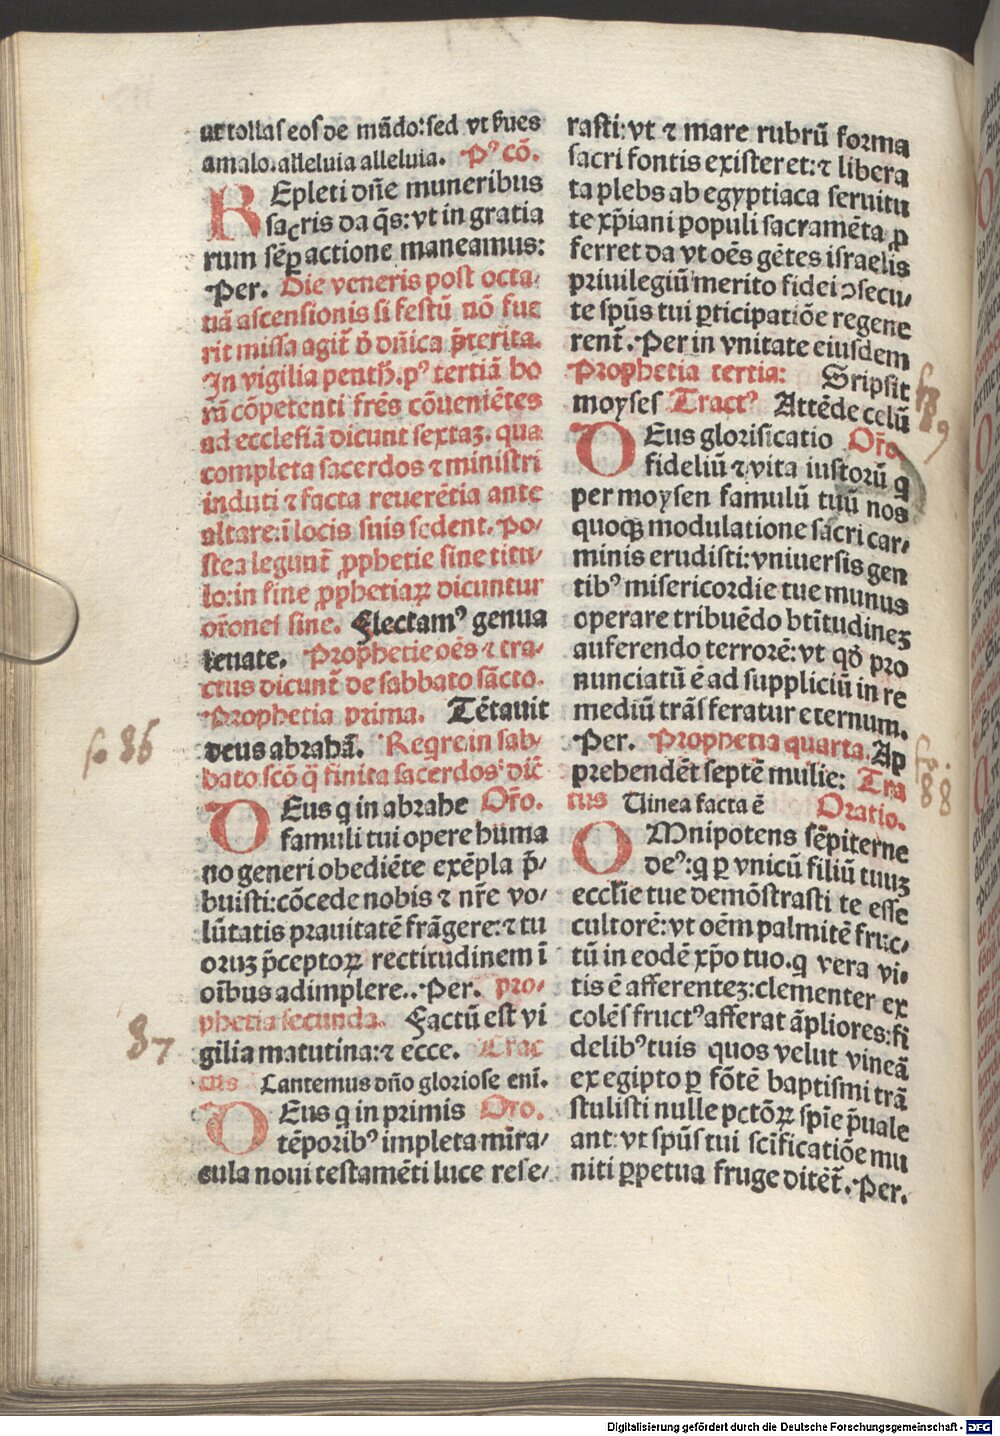 ut tollas eos de mūdo: sed vt ẜues
a malo. alleluia alleluia. Pꝰ cō.
REpleti dn̄e muneribus
sacris da q̄s: vt in gratia
rum sēꝑ actione maneamus:
Per. Die veneris post octa-
uā ascensionis si festū nō fue
rit missa agit̄ ð dn̄ica p̄terita.
In vigilia penth̄. pꝰ tertiā ho
rā cōpetenti frēs cōueniētes
ad ecclesiā dicunt sextaꝫ. qua
completa sacerdos ⁊ ministri
induti ⁊ facta reuerētia ante
altare: ī locis suis sedent. Po-
stea legunt̄ ꝓphetie sine titu-
lo: in fine ꝓphetiaꝝ dicuntur
or̄ones sine. Flectamꝰ genua
leuate. Prophetie oēs ⁊ tra-
ctus dicunt̄ de sabbato sācto.
Prophetia prima. Tētauit
deus abrahā. Reqre in sab-
bato scō q̄ finita sacerdos dic̄
DEus q in abrahe Or̄o.
famuli tui opere huma
no generi obediēte exēpla p̄-
buisti: cōcede nobis ⁊ nr̄e vo-
lūtatis prauitatē frāgere: ⁊ tu
oruꝫ p̄ceptoꝝ rectitudinem ī
oībus adimplere.. Per. pro-
phetia secunda. Factū est vi
gilia matutina: ⁊ ecce. Trac
tus Cantemus dn̄o gloriose enī.
DEus q in primis Or̄o.
tēporibꝰ impleta mira-
cula noui testamēti luce rese-
rasti: vt ⁊ mare rubrū forma
sacri fontis existeret: ⁊ libera
ta plebs ab egyptiaca seruitu
te xp̄iani populi sacramēta ꝓ
ferret da vt oēs gētes israelis
priuilegiū merito fidei ↄsecu-
te spūs tui ꝑticipatiōe regene
rent̄. Per in vnitate eiusdem
Prophetia tertia: Sripsit
moyses Tractꝰ Attēde celū
DEus glorificatio Or̄o.
fideliū ⁊ vita iustorū q
per moysen famulū tuū nos
quoqꝫ modulatione sacri car-
minis erudisti: vniuersis gen
tibꝰ misericordie tue munus
operare tribuēdo btītudineꝫ
auferendo terrorē: vt qð pro
nunciatū ē ad suppliciū in re
mediū trāsferatur eternum.
Per. Prophetia quarta. Ap
prehendēt septē mulie: Tra
ctus Uinea facta ē Oratio.
OMnipotens sēpiterne
deꝰ: q ꝑ vnicū filiū tuuꝫ
eccl̄ie tue demōstrasti te esse
cultorē: vt oēm palmitē fruc-
tū in eodē xp̄o tuo. q vera vi-
tis ē afferenteꝫ: clementer ex
colēs fructꝰ afferat āpliores: fi
delibꝰ tuis quos velut vineā
ex egipto ꝑ fōtē baptismi trā
stulisti nulle pctōꝝ spīe p̄uale
ant: vt spūs tui scīficatiōe mu
niti ꝑpetua fruge ditēt̄. Per.
fo 86
87
fo.
88
Digitalisierung gefördert durch die Deutsche Forschungsgemeinschaft - DFG